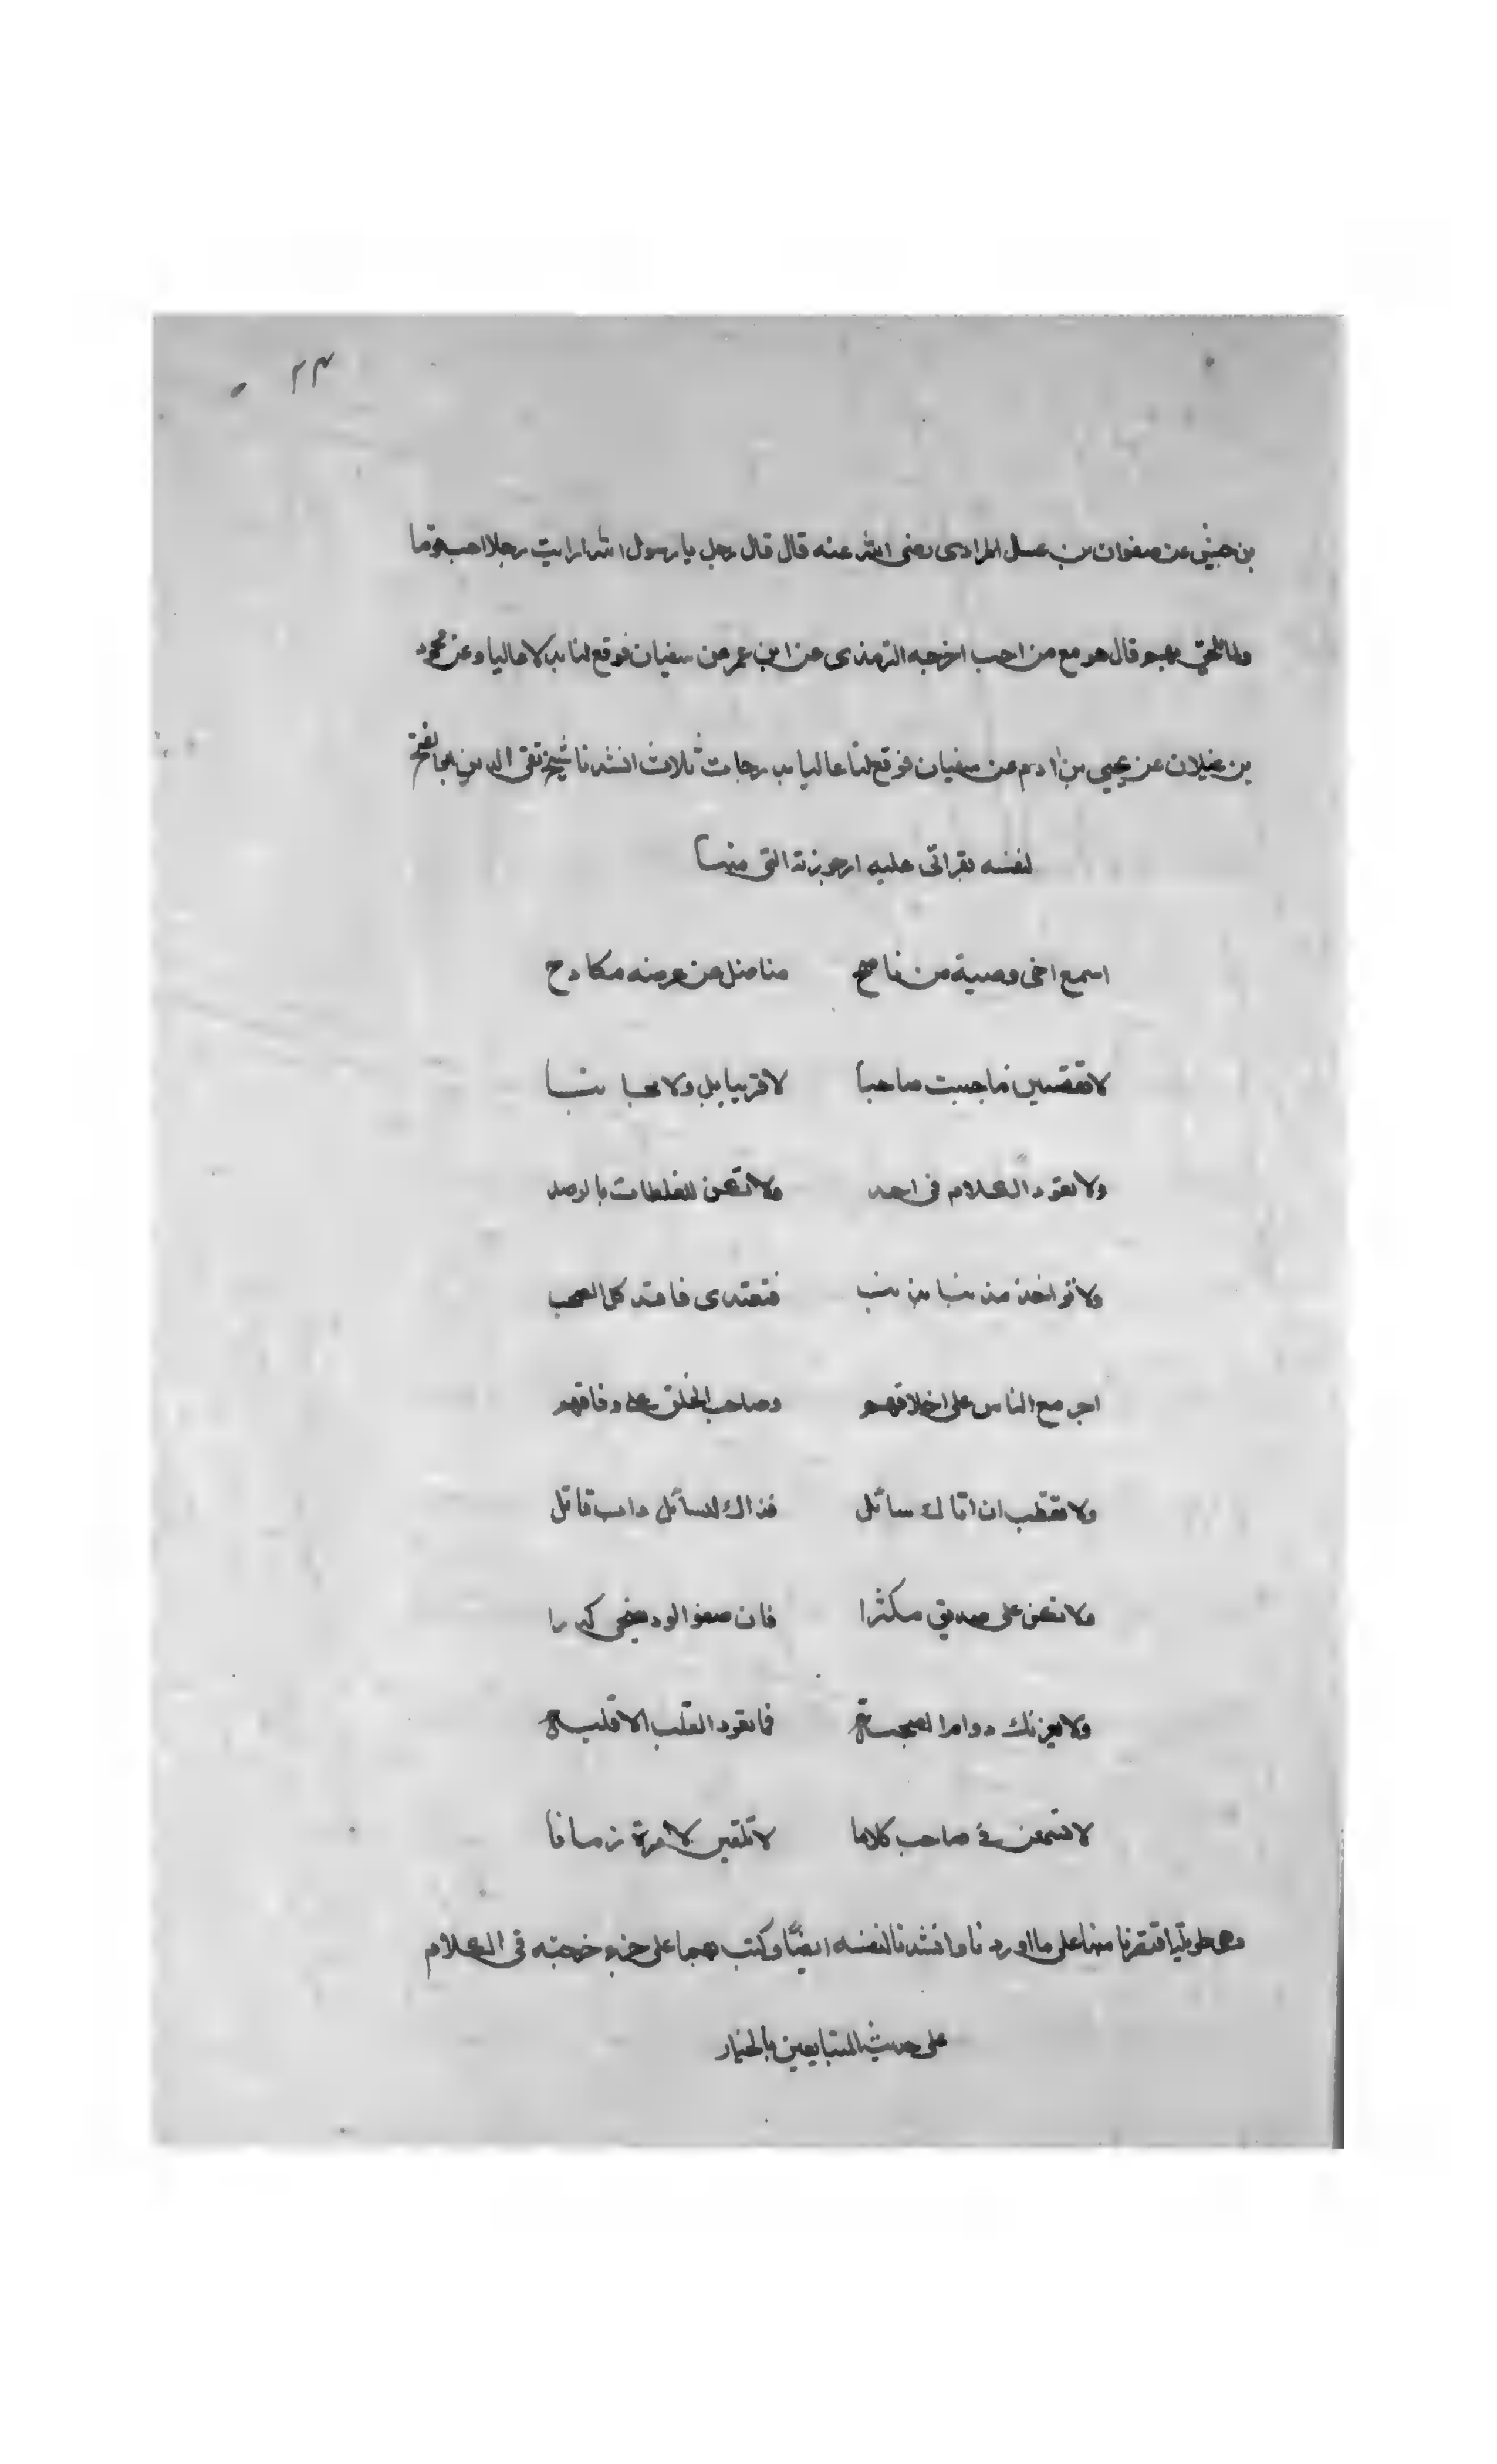 ٢٣
بن حبيش عن صفوان بن عسال المرادى رضى الله عنه قال قال رجل يا رسول الله ارايت رجلا احب قوما
ولما يلحق بهم قال هو مع من احب اخرجه الترمذى عن ابن عمر عن سفيان فوقع لنا بدلا عاليا وعن محمود
بن غيلان عن يحيى بن ادم عن سفيان فوقع لنا عاليا بدرجات ثلاث انشدنا شيخ تقى الدين ابو الفتح
لنفسه بقراتى عليه ارجوزته التى منها
اسمع اخى وصية من ناصح مناضل عن عرضه مكادح
لا تقصين ما حييت صاحبا لا قريبا بل ولا مجانبا
ولا تعود الكلام فى احد ولا تكن للغلطات بالرصد
ولا تواخذ مذنبا بذنب فتغتدى فاقد كل الصحب
اجر مع الناس على اخلاقهم وصاحب الخلق على وفاقهم
ولا تقطب ان اتاك سائل فذاك للسائل داء قاتل
ولا تكن على صديق مكثرا فان صفو الود يضحى كدرا
ولا يعزنك دوام الصحبة فما يقود القلب الا قلبه
لا تسمعن فى صاحب كلاما لا تلقين لامرئ زماما
وهى طويلة اقتصرنا منها على ما اوردنا وانشدنا لنفسه ايضا وكتب بهما على جزء خرجته فى الكلام
على حديث المتبايعين بالخيار